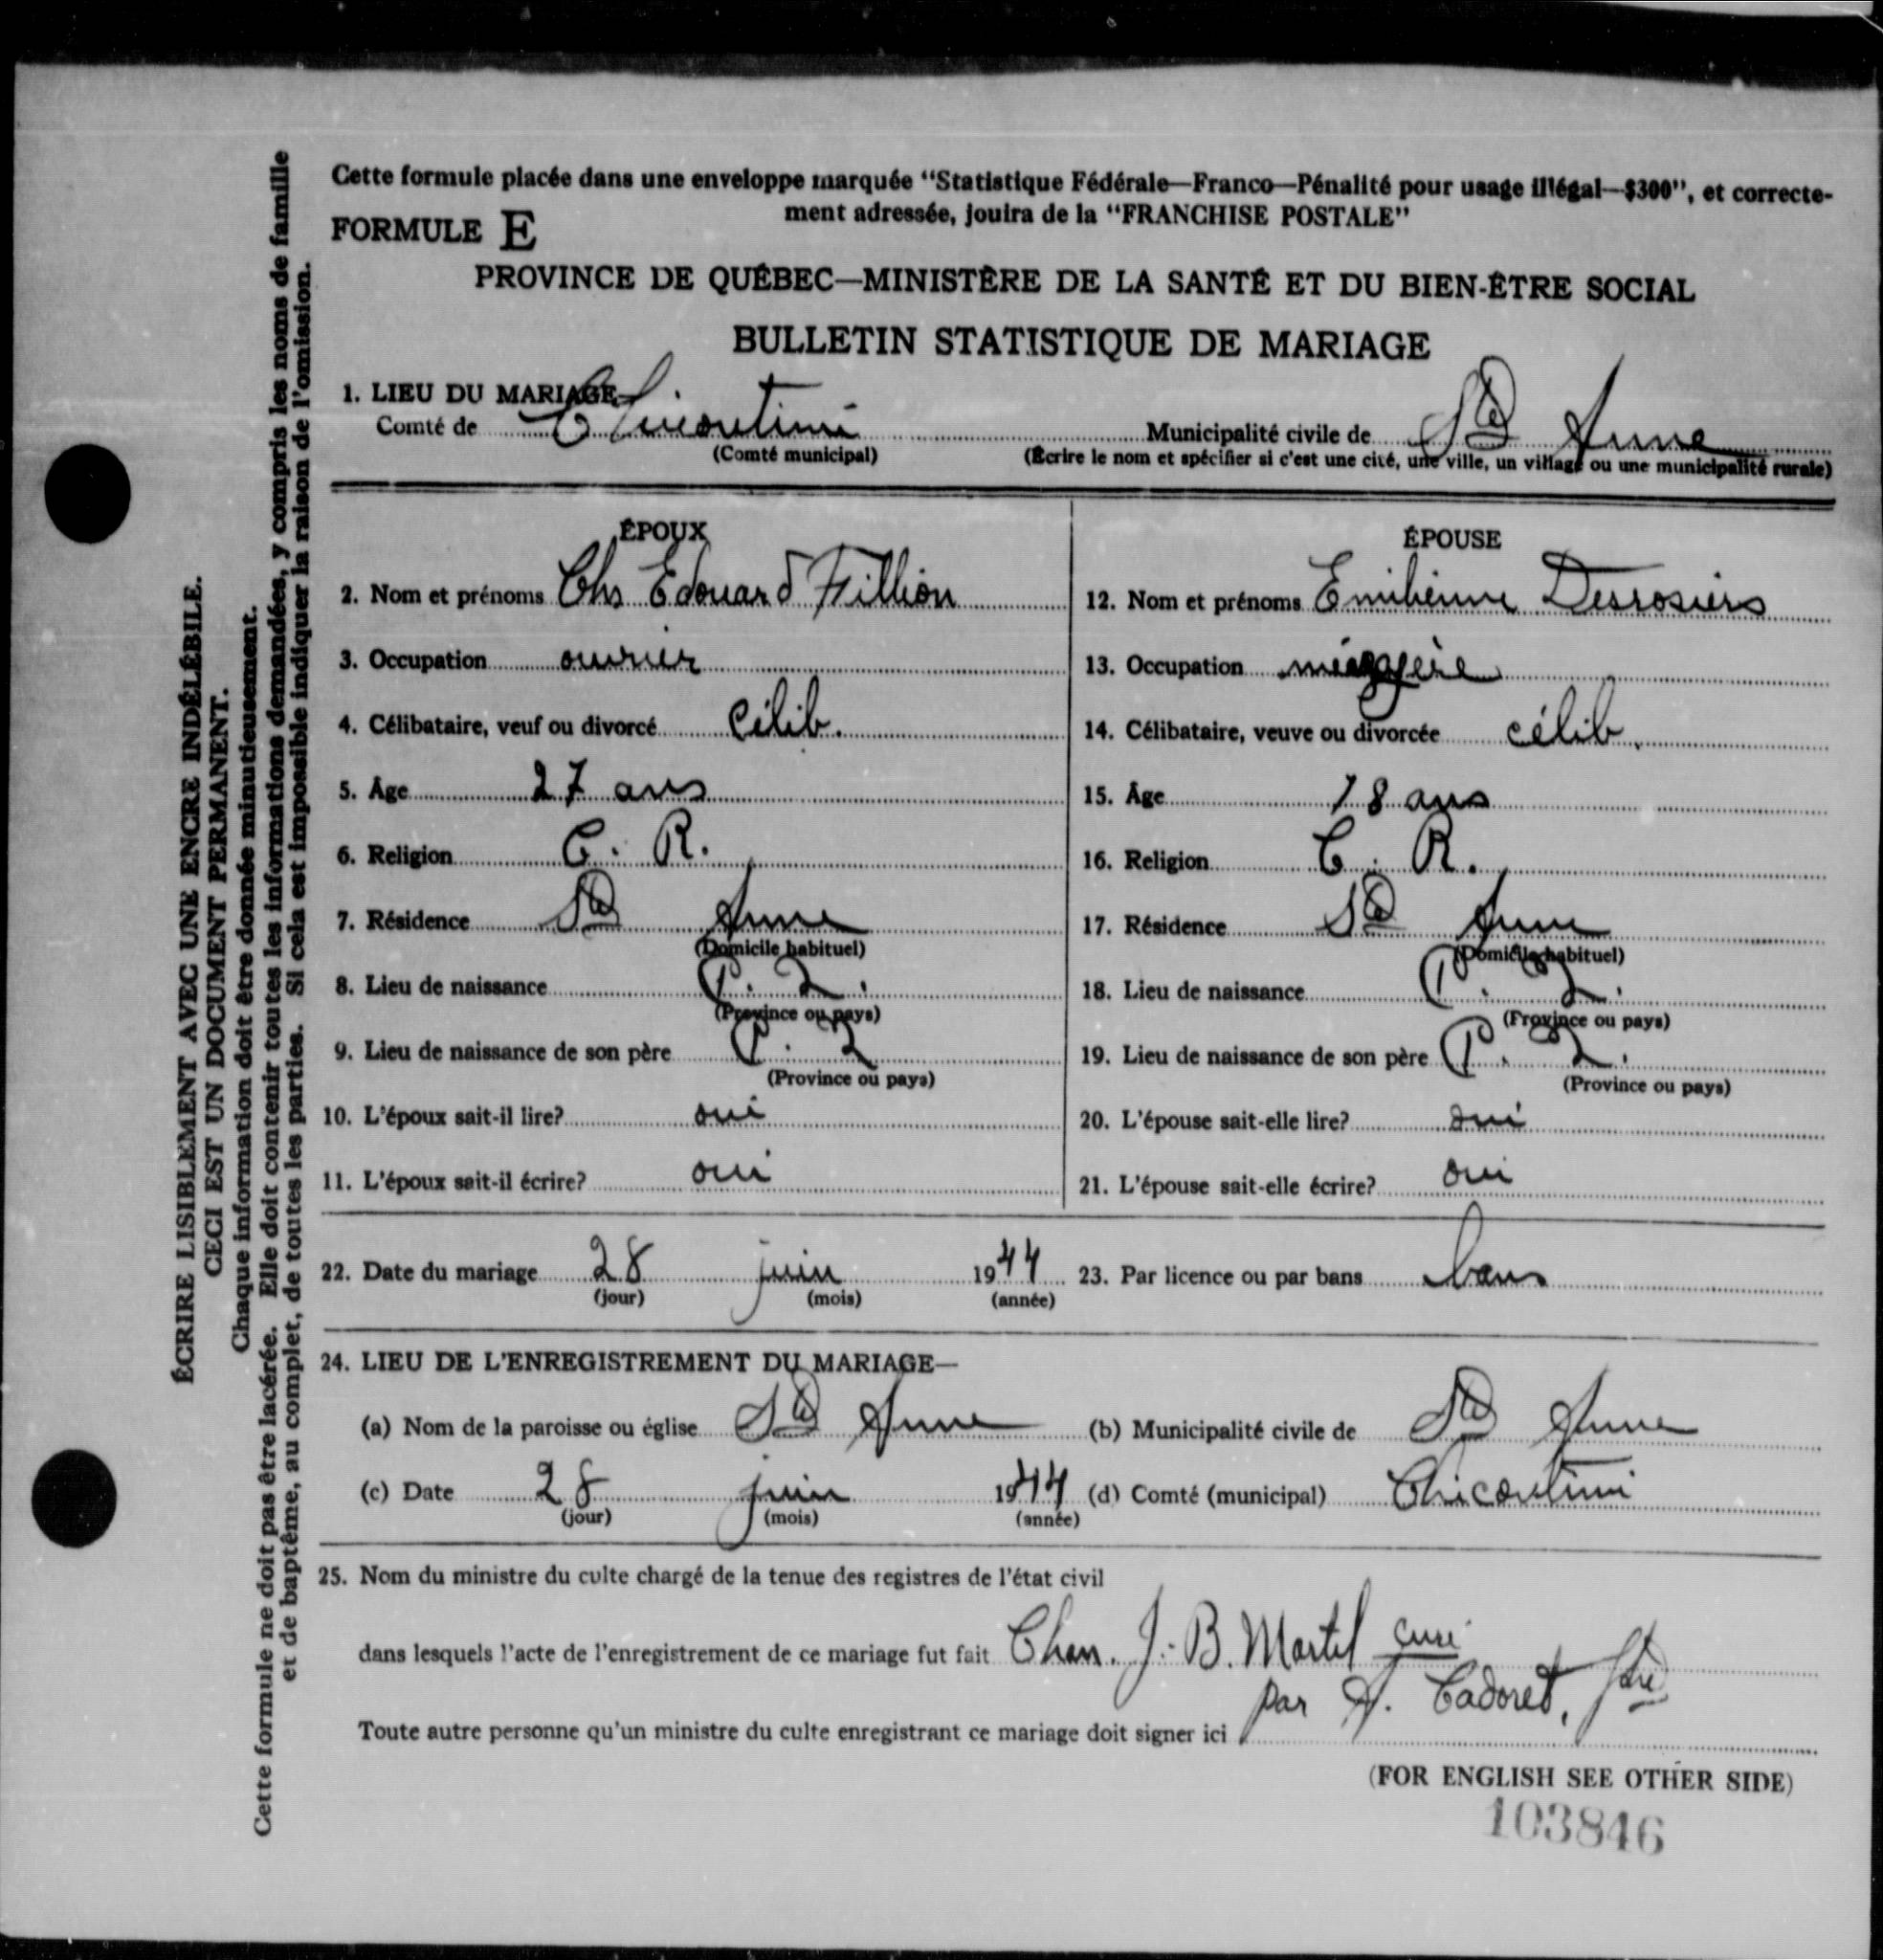 Cette formule placée dans une enveloppe marquée "Statistique Fédérale—Franco—Pénalité pour usage illégal—$300", et correcte-
ment adressée, jouira de la "FRANCHISE POSTALE"
FORMULE E
PROVINCE DE QUÉBEC—MINISTÈRE DE LA SANTÉ ET DU BIEN-ÊTRE SOCIAL
BULLETIN STATISTIQUE DE MARIAGE
1. LIEU DU MARIAGE—
Comté de Chicoutimi Municipalité civile de Ste Anne
(Comté municipal) (Écrire le nom et spécifier si c'est une cité, une ville, un village ou une municipalité rurale)
ÉPOUX
2. Nom et prénoms Chs Edouard Fillion
3. Occupation ouvrier
4. Célibataire, veuf ou divorcé célib.
5. Âge 27 ans
6. Religion C. R.
7. Résidence Ste Anne
(Domicile habituel)
8. Lieu de naissance P. Q.
(Province ou pays)
9. Lieu de naissance de son père P. Q
(Province ou pays)
10. L'époux sait-il lire? oui
11. L'époux sait-il écrire? oui
ÉPOUSE
12. Nom et prénoms Emilienne Desrosiers
13. Occupation ménagère
14. Célibataire, veuve ou divorcée célib.
15. Âge 18 ans
16. Religion C. R.
17. Résidence Ste Anne
(Domicile habituel)
18. Lieu de naissance P. Q.
(Province ou pays)
19. Lieu de naissance de son père P. Q.
(Province ou pays)
20. L'épouse sait-elle lire? oui
21. L'épouse sait-elle écrire? oui
22. Date du mariage 28 juin 1944 23. Par licence ou par bans bans
(jour) (mois) (année)
24. LIEU DE L'ENREGISTREMENT DU MARIAGE—
(a) Nom de la paroisse ou église Ste Anne (b) Municipalité civile de Ste Anne
(c) Date 28 juin 1944 (d) Comté (municipal) Chicoutimi
(jour) (mois) (année)
25. Nom du ministre du culte chargé de la tenue des registres de l'état civil
dans lesquels l'acte de l'enregistrement de ce mariage fut fait Chan. J. B. Martel curé
par A. Cadoret, ptre
Toute autre personne qu'un ministre du culte enregistrant ce mariage doit signer ici
(FOR ENGLISH SEE OTHER SIDE)
103846
ÉCRIRE LISIBLEMENT AVEC UNE ENCRE INDÉLÉBILE.
CECI EST UN DOCUMENT PERMANENT.
Chaque information doit être donnée minutieusement.
Cette formule ne doit pas être lacérée. Elle doit contenir toutes les informations demandées, y compris les noms de famille
et de baptême, au complet, de toutes les parties. Si cela est impossible indiquer la raison de l'omission.